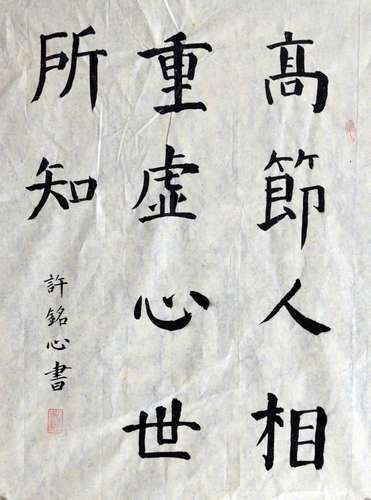 高節人相
重虛心世
所知
許銘心書